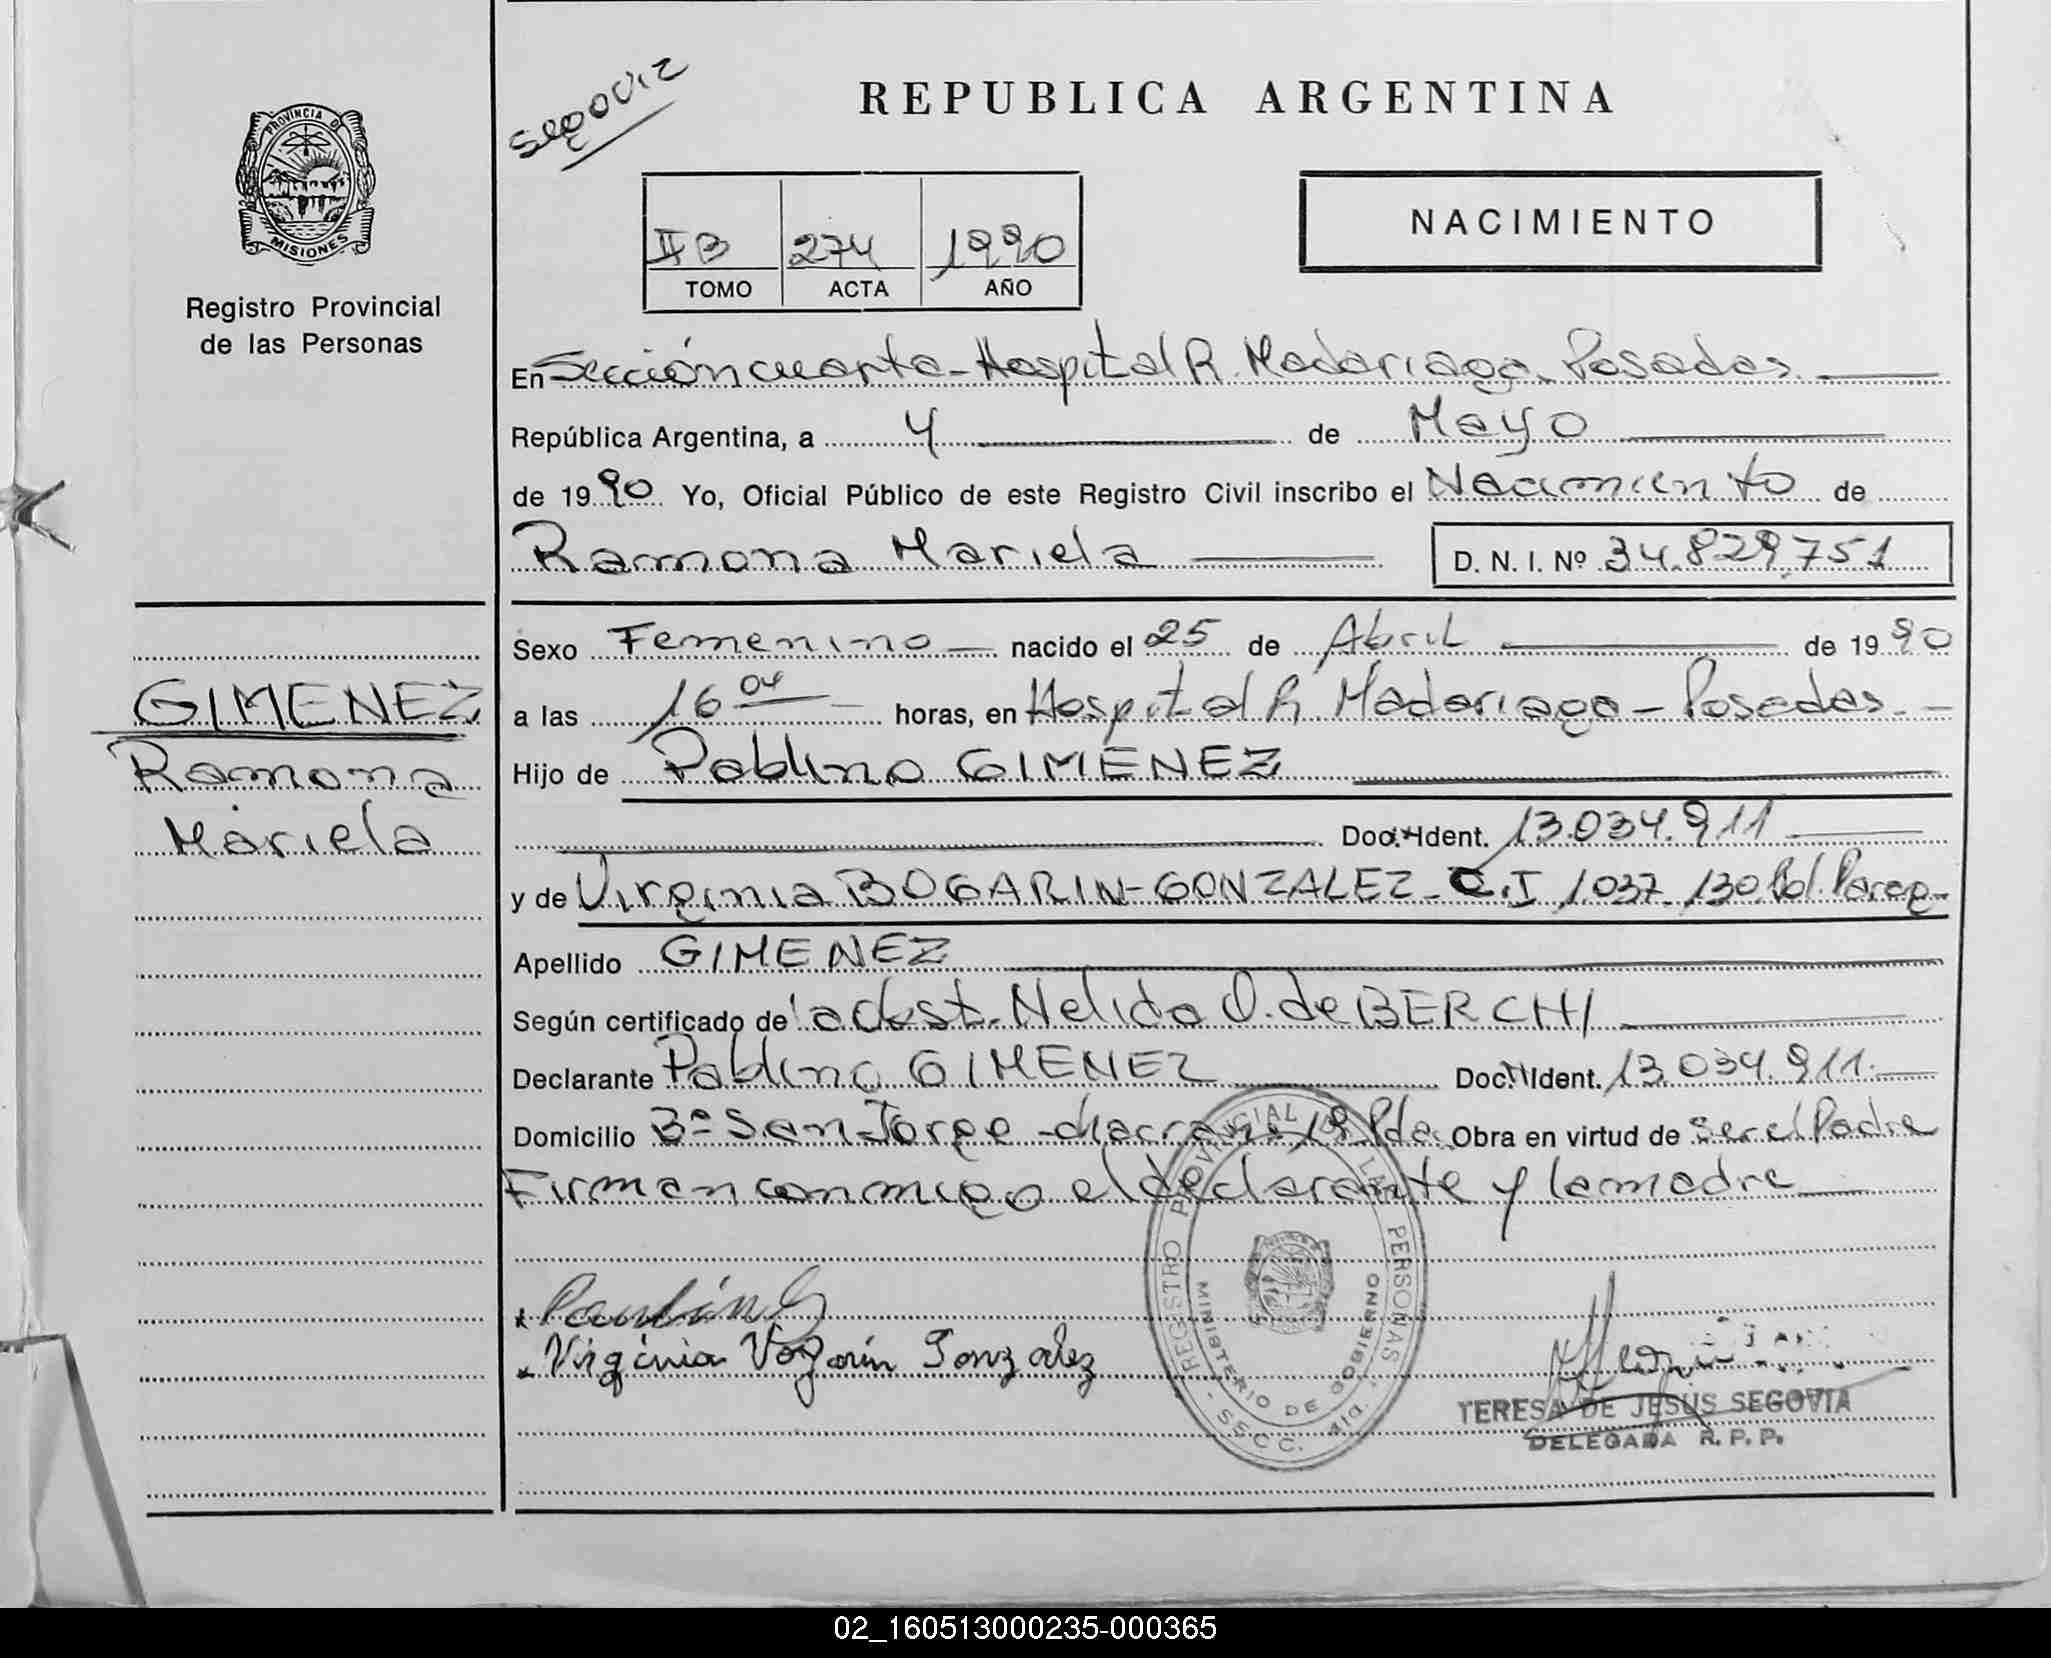 PROVINCIA DE
MISIONES
Registro Provincial
de las Personas
GIMENEZ
Ramona
Mariela
Segovia
REPUBLICA ARGENTINA
NACIMIENTO
II B 274 1990
TOMO ACTA AÑO
En Sección cuarta - Hospital R. Madariaga. Posadas.
República Argentina, a 4 de Mayo
de 1990 Yo, Oficial Público de este Registro Civil inscribo el Nacimiento de
Ramona Mariela D. N. I. Nº 34.829.751
Sexo Femenino nacido el 25 de Abril de 1990
a las 16 04 horas, en Hospital R. Madariaga - Posadas.
Hijo de Pablino GIMENEZ
Doc. Ident. 13.034.911
y de Virginia BOGARIN - GONZALEZ - C.I 1.037.130 Pol. Parag.
Apellido GIMENEZ
Según certificado de la obst. Nelida O. de BERCHI
Declarante Pablino GIMENEZ Doc. Ident. 13.034.911.
Domicilio Bº San Jorge - chacra 19 Pdas. Obra en virtud de ser el Padre
Firman conmigo el declarante y la madre
Virginia Vogarin Gonzalez
REGISTRO PROVINCIAL DE LAS PERSONAS
MINISTERIO DE GOBIERNO
- SECC. 4ta. -
TERESA DE JESUS SEGOVIA
DELEGADA R. P. P.
02_160513000235-000365